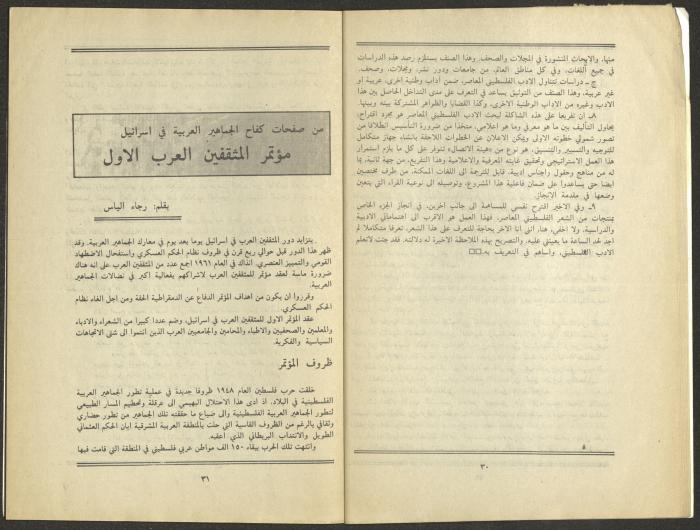 منها، والابحاث المنشورة في المجلات والصحف. وهذا الصنف يستلزم رصد هذه الدراسات
في جميع اللغات، وفي كل مناطق العالم، من جامعات ودور نشر، ومجلات، وصحف.
ج ـ دراسات تتناول الادب الفلسطيني المعاصر، ضمن آداب وطنية اخرى، عربية او
غير عربية، وهذا الصنف من التوثيق يساعد في التعرف على مدى التداخل الحاصل بين هذا
الادب وغيره من الآداب الوطنية الاخرى، وكذا القضايا والظواهر المشتركة بينه وبينها.
٨ـ ان تفريعا على هذه الشاكلة لبحث الادب الفلسطيني المعاصر هو مجرد اقتراح،
يحاول التأليف بين ما هو معرفي وما هو اعلامي، متخذا من ضرورة التأسيس انطلاقا من
تصور شمولي خطوته الاولى ويمكن الاعلان عن الخطوات اللاحقة بانشاء جهاز متكامل
للتوجيه والتسيير والتنسيق، هو نوع من «هيئة الاتصال» تتوفر على كل ما يلزم استمرار
هذا العمل الاستراتيجي وتحقيق غايته المعرفية والاعلامية وهذا التفريع، من جهة ثانية، بما
له من مناهج وحقول واجناس ادبية، قابل للترجمة الى اللغات الممكنة، من طرف مختصين
ايضا حتى يساعدوا على ضمان فاعلية هذا المشروع، وتوصيله الى نوعية القراء التي يتعين
وضعها في مقدمة الانجاز.
٩ـ وفي الاخير اقترح نفسي للمساهمة الى جانب آخرين، في انجاز الجزء الخاص
بمنتجات من الشعر الفلسطيني المعاصر، فهذا العمل هو الاقرب الى اهتماماتي الادبية
والدراسية، ولا اخفي، هنا، انني انا الآخر بحاجة للتعرف على هذا الشعر، تعرفا متكاملا لم
اجد لحد الساعة ما يعينني عليه، والتصريح بهذه الملاحظة الاخيرة له دلالته. فقد جئت لاتعلم
الادب الفلسطيني، واساهم في التعريف به.□□
٣٠
من صفحات كفاح الجماهير العربية في اسرائيل
مؤتمر المثقفين العرب الاول
بقلم: رجاء الياس
يتزايد دور المثقفين العرب في اسرائيل يوما بعد يوم في معارك الجماهير العربية. وقد
ظهر هذا الدور قبل حوالي ربع قرن في ظروف نظام الحكم العسكري واستفحال الاضطهاد
القومي والتمييز العنصري. آنذاك في العام ١٩٦١ اجمع عدد من المثقفين العرب على انه هناك
ضرورة ماسة لعقد مؤتمر للمثقفين العرب لاشراكهم بفعالية اكبر في نضالات الجماهير
العربية.
وقرروا ان يكون من اهداف المؤتمر الدفاع عن الدمقراطية الحقة ومن اجل الغاء نظام
الحكم العسكري.
عقد المؤتمر الاول للمثقفين العرب في اسرائيل، وضم عددا كبيرا من الشعراء والادباء
والمعلمين والصحفيين والاطباء والمحامين والجامعيين العرب الذين انتموا الى شتى الاتجاهات
السياسية والفكرية.
ظروف المؤتمر
خلقت حرب فلسطين العام ١٩٤٨ ظروفا جديدة في عملية تطور الجماهير العربية
الفلسطينية في البلاد. اذ ادى هذا الاحتلال البهيمي الى عرقلة وتحطيم المسار الطبيعي
لتطور الجماهير العربية الفلسطينية والى ضياع ما حققته تلك الجماهير من تطور حضاري
وثقافي بالرغم من الظروف القاسية التي حلت بالمنطقة العربية المشرقية ابان الحكم العثماني
الطويل والانتداب البريطاني الذي اعقبه.
وانتهت تلك الحرب ببقاء ١٥٠ الف مواطن عربي فلسطيني في المنطقة التي قامت فيها
٣١